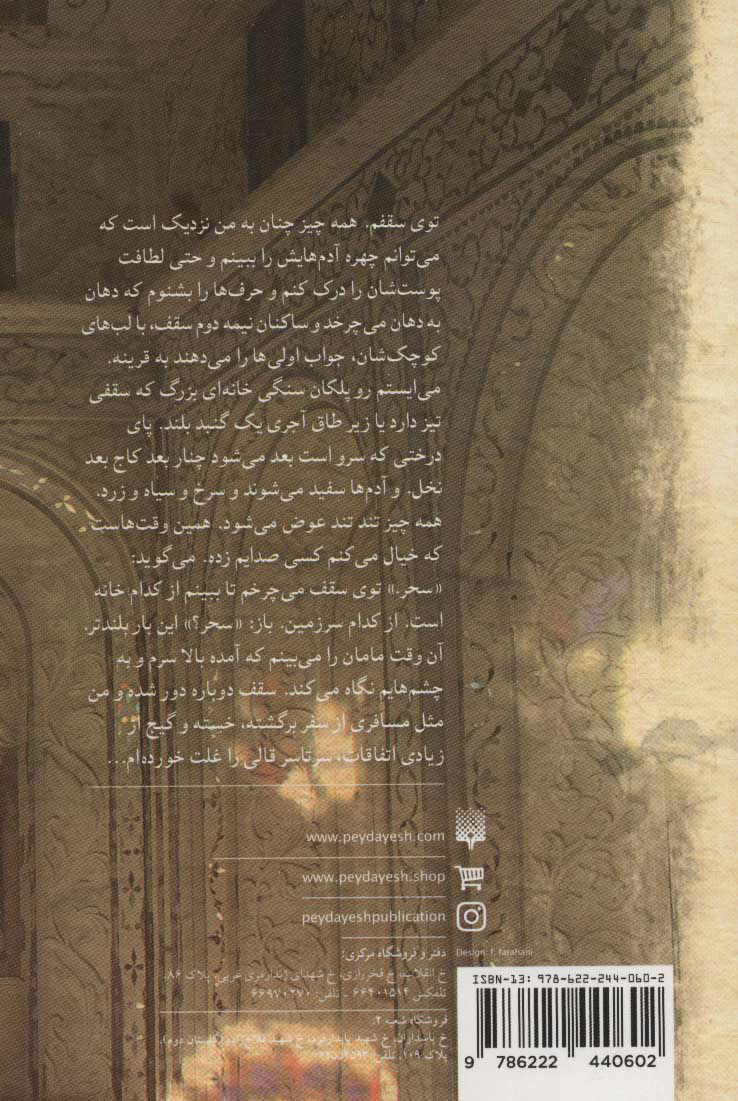 توی سقفم. همه چیز چنان به من نزدیک است که
می‌توانم چهره آدم‌هایش را ببینم و حتی لطافت
پوست‌شان را درک کنم و حرف‌ها را بشنوم که دهان
به دهان می‌چرخد و ساکنان نیمه دوم سقف، با لب‌های
کوچک‌شان، جواب اولی‌ها را می‌دهند به قرینه.
می‌ایستم رو پلکان سنگی خانه‌ای بزرگ که سقفی
تیز دارد یا زیر طاق آجری یک گنبد بلند. پای
درختی که سرو است بعد می‌شود چنار بعد کاج بعد
نخل. و آدم‌ها سفید می‌شوند و سرخ و سیاه و زرد.
همه چیز تند تند عوض می‌شود. همین وقت‌هاست
که خیال می‌کنم کسی صدایم زده. می‌گوید:
«سحر.» توی سقف می‌چرخم تا ببینم از کدام خانه
است. از کدام سرزمین. باز: «سحر؟» این بار بلندتر.
آن وقت مامان را می‌بینم که آمده بالا سرم و به
چشم‌هایم نگاه می‌کند. سقف دوباره دور شده و من
مثل مسافری از سفر برگشته، خسته و گیج از
زیادی اتفاقات، سرتاسر قالی را غلت خورده‌ام...
www.peydayesh.com
www.peydayesh.shop
peydayeshpublication
Design: f. farahani
دفتر و فروشگاه مرکزی:
خ انقلاب، خ فخررازی، خ شهدای ژاندارمری غربی، پلاک ۸۶.
تلفکس: ۶۶۴۰۱۵۱۴ - تلفن: ۶۶۹۷۰۲۷۰
فروشگاه شعبه ۲:
خ پاسداران، خ شهید پایدارفرد، خ شهید (گلستان دوم)،
پلاک ۱۰۹، تلفن:
ISBN-13: 978-622-244-060-2
9 786222 440602